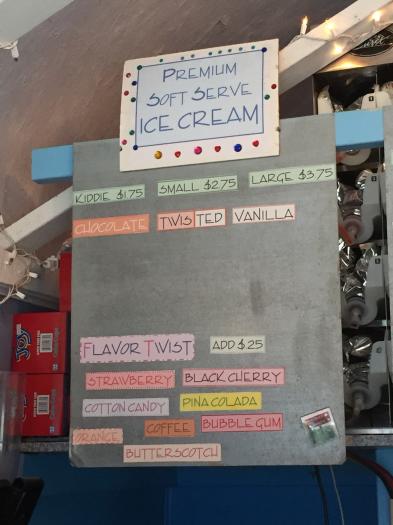 PREMIUM
SOFT SERVE
ICE CREAM
KIDDIE $1.75 SMALL $2.75 LARGE $3.75
CHOCOLATE TWISTED VANILLA
FLAVOR TWIST ADD $.25
STRAWBERRY BLACK CHERRY
COTTON CANDY PINA COLADA
ORANGE COFFEE BUBBLE GUM
BUTTERSCOTCH
JOY
JOY